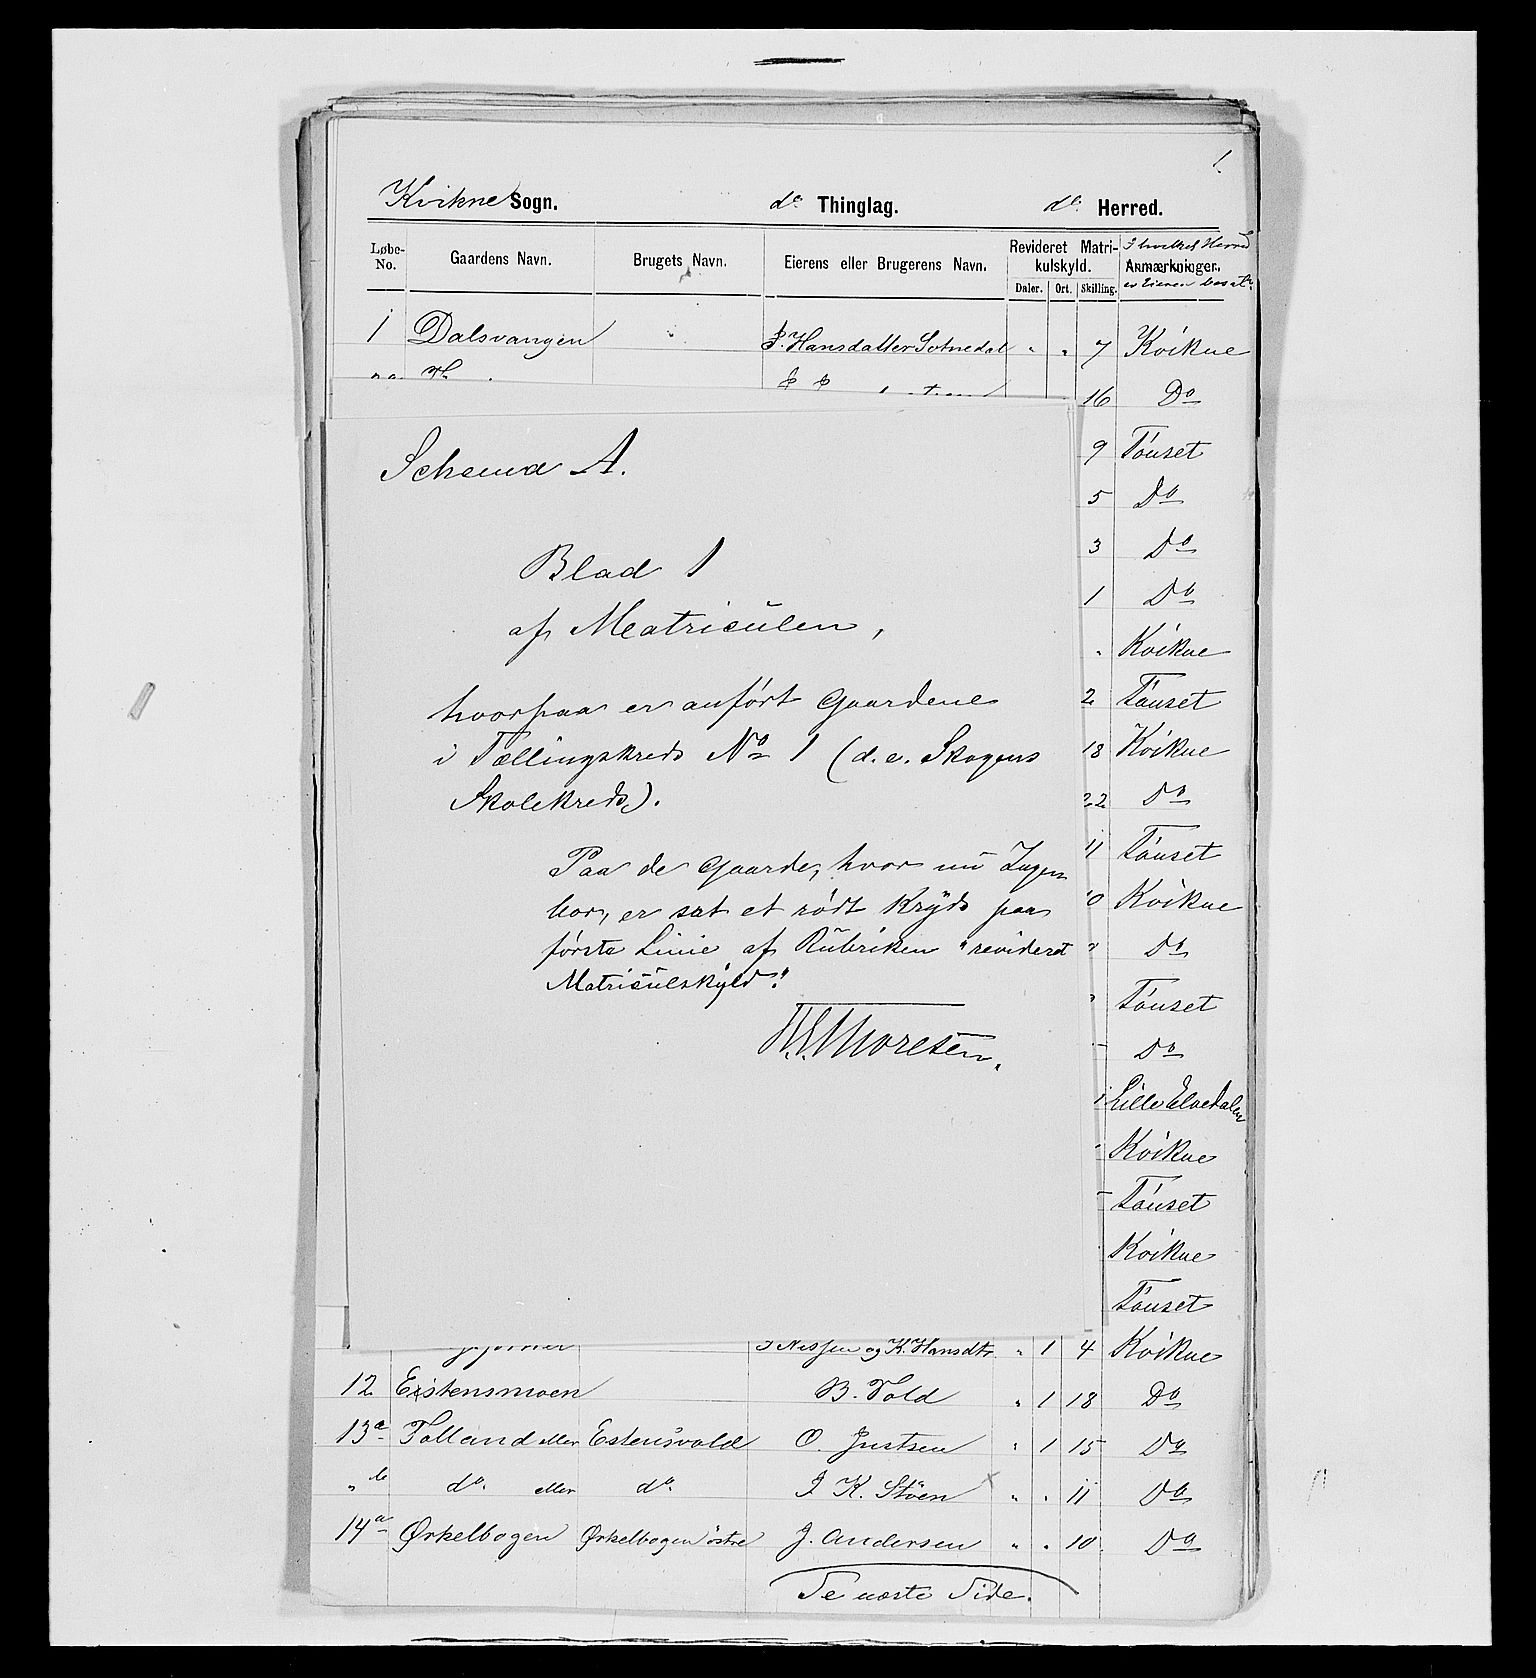 1.
Kvikne Sogn. do Thinglag. do. Herred.
Løbe-No. Gaardens Navn. Brugets Navn. Eierens eller Brugerens Navn. Revideret Matrikulskyld. I hvilket Herred
Daler. Ort. Skilling. Anmærkninger. er Eieren bosat.
1 Dalsvangen " Hansdatter Sotnedal " " 7 Kvikne
16 Do
9 Tönset
5 Do
3 Do
1 Do
" Kvikne
2 Tönset
18 Kvikne
22 Do
11 Tönset
10 Kvikne
" Do
" Tönset
Do
Lille Elvedalen
Kvikne
Tönset
Kvikne
Tönset
Schema A.
Blad 1
af Matriculen,
hvorpaa er anført Gaardene
i Tællingskreds No 1 (d. e. Skogens
Skolekreds).
Paa de Gaarde, hvor nu Ingen
bor, er sat et rødt Kryds paa
første Linie af Rubriken "revideret
Matriculskyld".
Thoresen.
Nissen og K. Hansdtr. " 1 4 Kvikne
12 Estensmoen B. Vold " 1 18 Do
13a Tolland eller Estensvold O. Justsen " 1 15 Do
" b do. eller do. I. K. Støen " " 11 Do
14a Ørkelbogen Ørkelbogen östre J. Andersen " " 10 Do
Se næste Side.